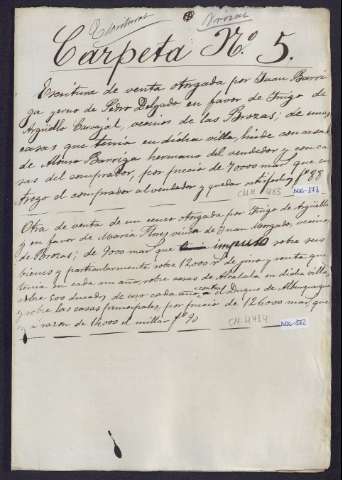 Escrituras Brozas
Carpeta Nº 5.
Escritura de venta otorgada por Juan Barri
ga yerno de Pedro Delgado en favor de Iñigo de
Argüello Carvajal, vecinos de las Brozas, de unas
casas que tenia en dicha villa, linde con casas
de Alonso Barriga hermano del vendedor y con ca
sas del comprador, por precio de 7000 mars que en
tregó el comprador al vendedor y quedar fº 88
CM.H. 483
Otra de venta de un censo otorgada por Iñigo de Argüello
y en favor de Maria Flores viuda de Juan Morgado, vecinos
de Brozas; de 9000 mars que impuso sobre sus
bienes y particularmente sobre 12.000 de juro y renta que
tenia en cada un año, sobre casas de Alcabala en dicha villa,
sobre 500 ducados de cada año, contra el Duque de Alburquerque
y sobre las casas principales, por precio de 126.000 mars que
y a razon de 14.000 el millar fº 90
CM.H484